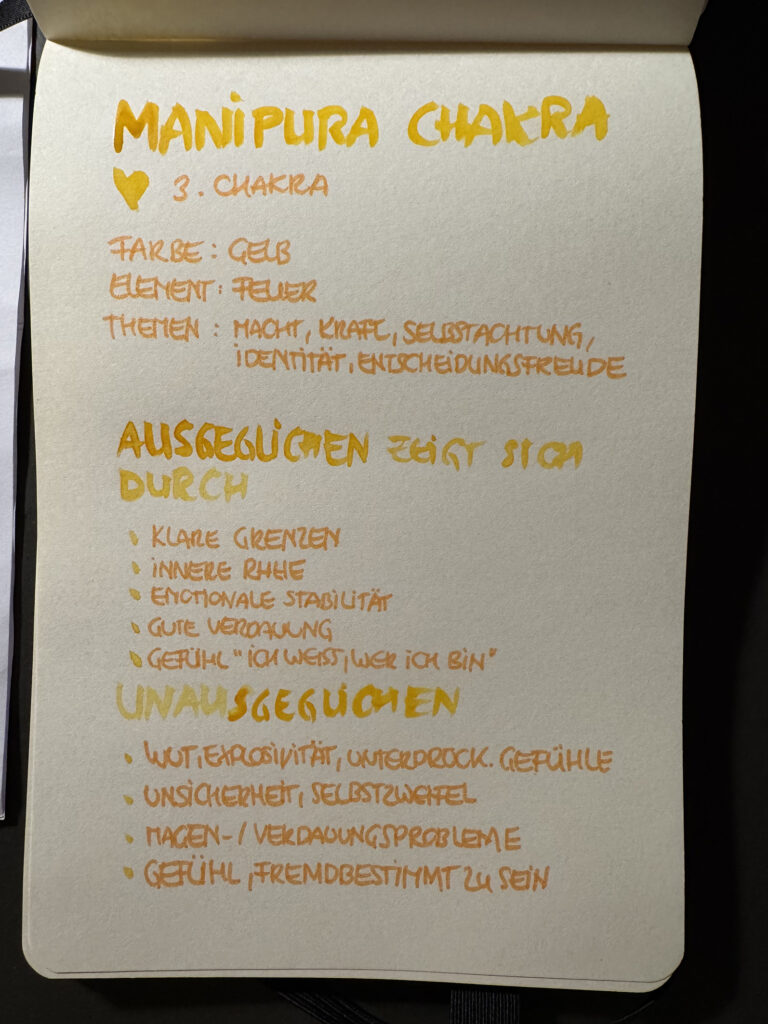 MANIPURA CHAKRA
3. CHAKRA
FARBE: GELB
ELEMENT: FEUER
THEMEN: MACHT, KRAFT, SELBSTACHTUNG,
IDENTITÄT, ENTSCHEIDUNGSFREUDE
AUSGEGLICHEN ZEIGT SICH
DURCH
• KLARE GRENZEN
• INNERE RUHE
• EMOTIONALE STABILITÄT
• GUTE VERDAUUNG
• GEFÜHL "ICH WEISS, WER ICH BIN"
UNAUSGEGLICHEN
• WUT, EXPLOSIVITÄT, UNTERDRÜCK. GEFÜHLE
• UNSICHERHEIT, SELBSTZWEIFEL
• MAGEN-/VERDAUUNGSPROBLEME
• GEFÜHL, FREMDBESTIMMT ZU SEIN